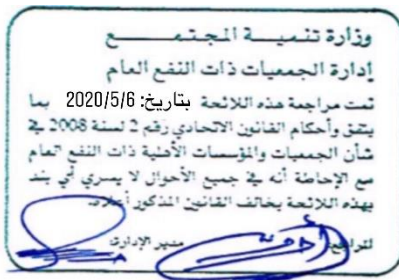 وزارة تنميـــة المجتمـــع
إدارة الجمعيات ذات النفع العام
تمت مراجعة هذه اللائحة بتاريخ: 2020/5/6 بما
يتفق وأحكام القانون الاتحادي رقم 2 لسنة 2008 في
شأن الجمعيات والمؤسسات الأهلية ذات النفع العام
مع الإحاطة أنه في جميع الأحوال لا يسري أي بند
بهذه اللائحة يخالف القانون المذكور أعلاه.
المراجع: مدير الإدارة: